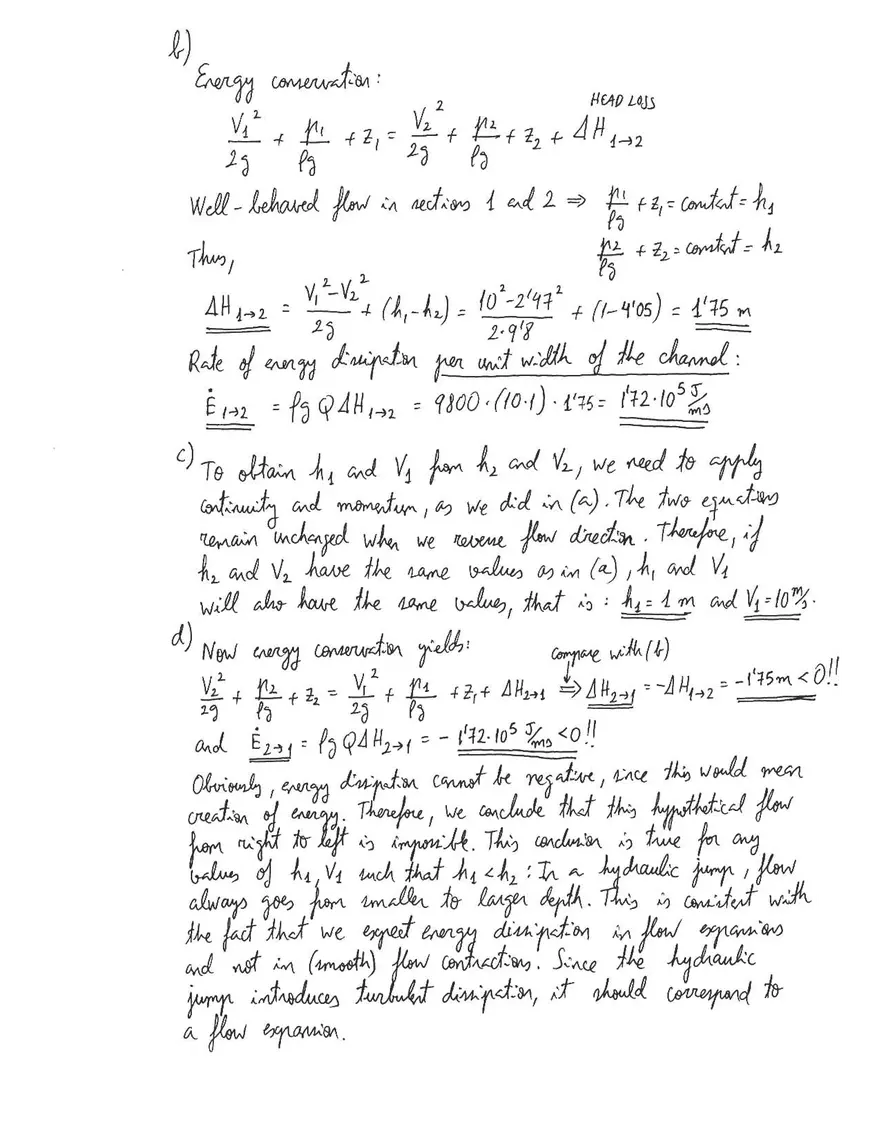 b)
Energy conservation:
HEAD LOSS
V₁²/2g + p₁/ρg + z₁ = V₂²/2g + p₂/ρg + z₂ + ΔH₁→₂
Well-behaved flow in sections 1 and 2 ⇒ p₁/ρg + z₁ = constant = h₁
p₂/ρg + z₂ = constant = h₂
Thus,
ΔH₁→₂ = (V₁²-V₂²)/2g + (h₁-h₂) = (10²-2'47²)/(2·9'8) + (1-4'05) = 1'75 m
Rate of energy dissipation per unit width of the channel:
Ė₁→₂ = ρg Q ΔH₁→₂ = 9800·(10·1)·1'75 = 1'72·10⁵ J/ms
c) To obtain h₁ and V₁ from h₂ and V₂, we need to apply
continuity and momentum, as we did in (a). The two equations
remain unchanged when we reverse flow direction. Therefore, if
h₂ and V₂ have the same values as in (a), h₁ and V₁
will also have the same values, that is: h₁ = 1 m and V₁ = 10 m/s.
d) Now energy conservation yields:
compare with (b)
V₂²/2g + p₂/ρg + z₂ = V₁²/2g + p₁/ρg + z₁ + ΔH₂→₁ ⇒ ΔH₂→₁ = -ΔH₁→₂ = -1'75 m < 0!!
and Ė₂→₁ = ρg Q ΔH₂→₁ = - 1'72·10⁵ J/ms < 0!!
Obviously, energy dissipation cannot be negative, since this would mean
creation of energy. Therefore, we conclude that this hypothetical flow
from right to left is impossible. This conclusion is true for any
values of h₁, V₁ such that h₁ < h₂: In a hydraulic jump, flow
always goes from smaller to larger depth. This is consistent with
the fact that we expect energy dissipation in flow expansions
and not in (smooth) flow contractions. Since the hydraulic
jump introduces turbulent dissipation, it should correspond to
a flow expansion.